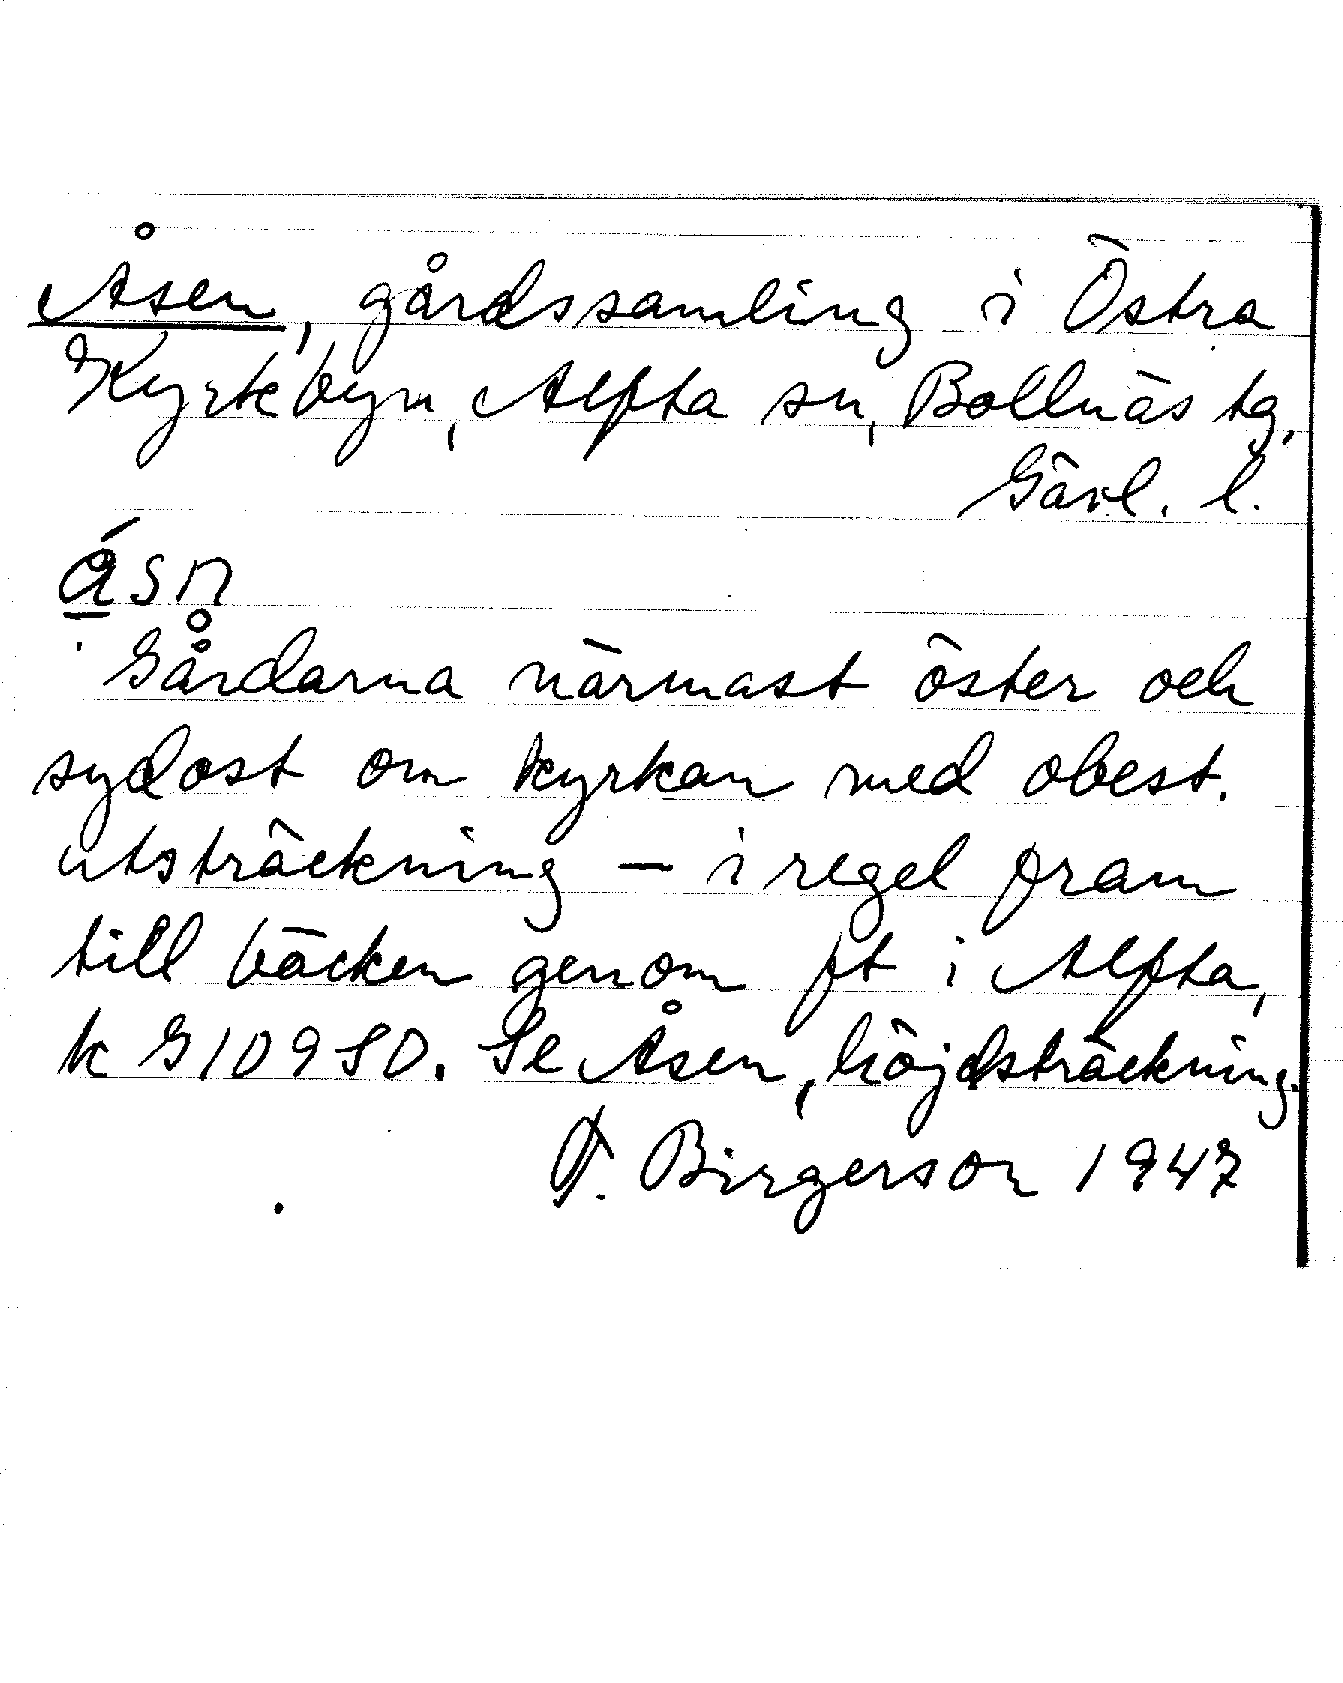 Åsen, gårdssamling i Östra
Kyrkbyn, Alfta sn, Bollnäs tg,
Gävl. l.
ásn
Gårdarna närmast öster och
sydost om kyrkan med obest.
utsträckning – i regel fram
till bäcken genom ft i Alfta,
k G109SO. Se Åsen, höjdsträckning.
Birgerson 1947